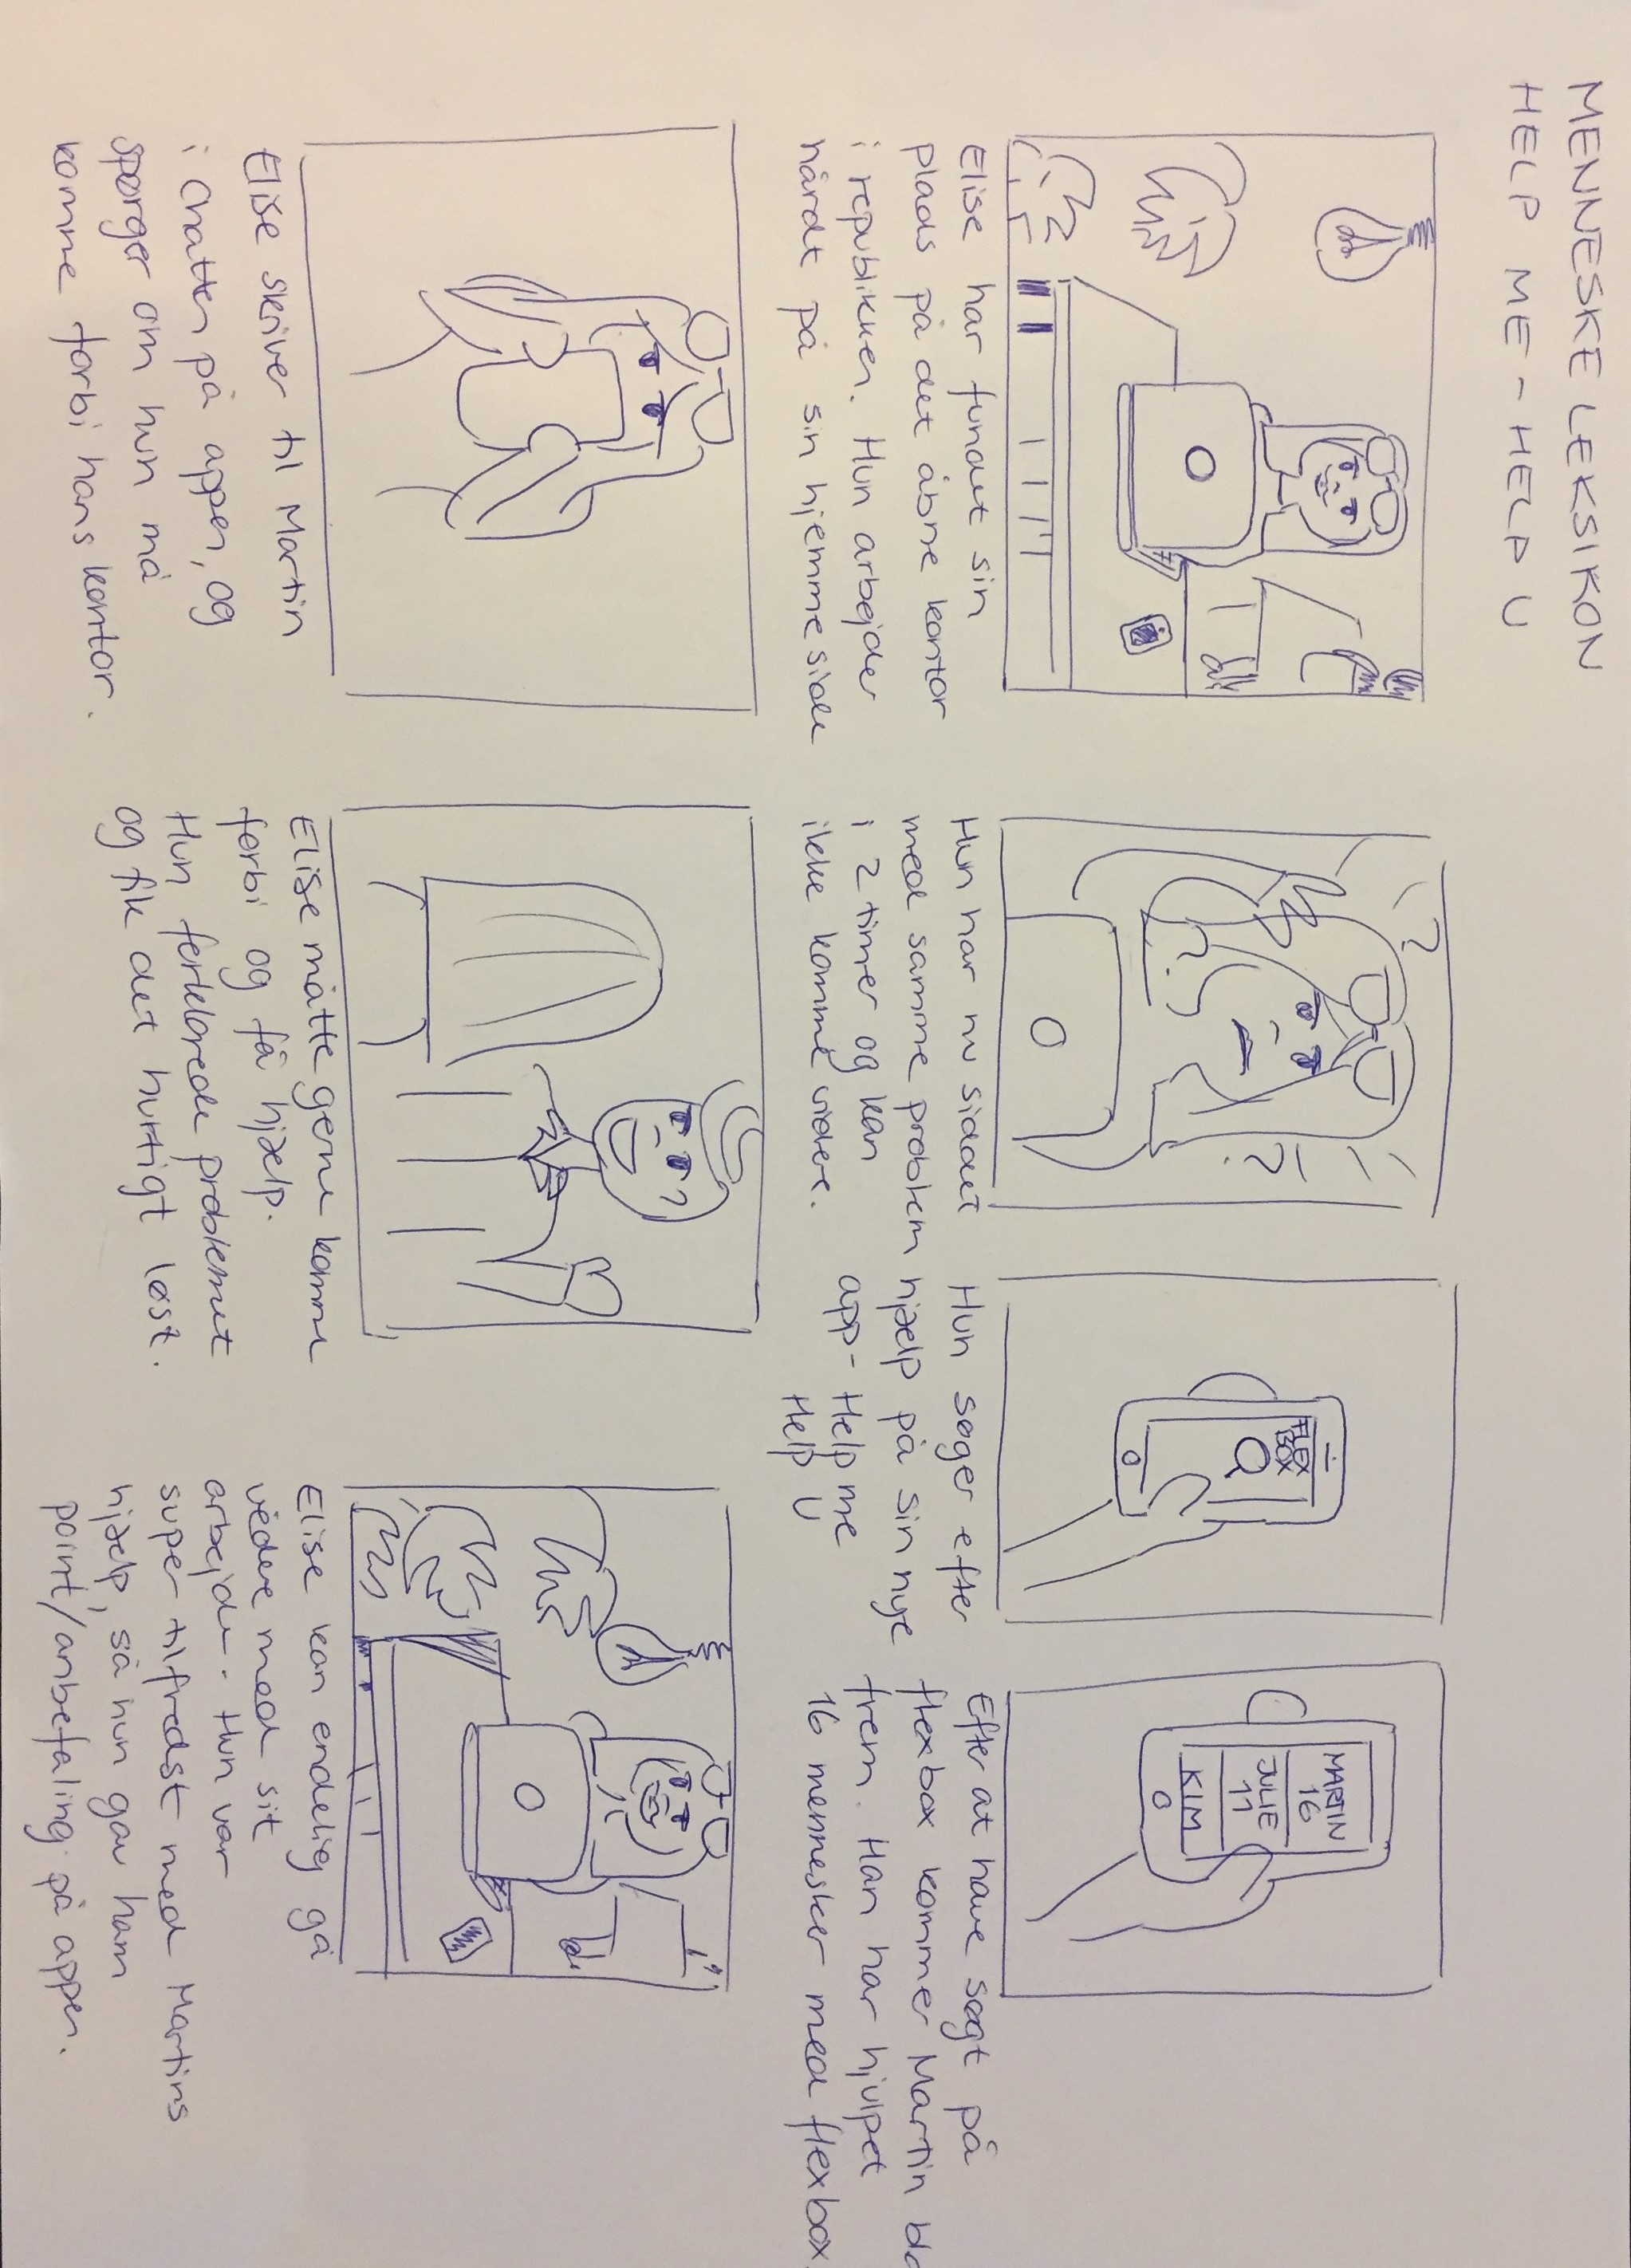 MENNESKE LEKSIKON
HELP ME - HELP U
Elise har fundet sin
plads på det åbne kontor
i republikken. Hun arbejder
hårdt på sin hjemmeside
?
?
Hun har nu siddet
med samme problem
i 2 timer og kan
ikke komme videre.
FLEX
BOX
Hun søger efter
hjælp på sin nye
app - Help me
Help U
MARTIN
16
JULIE
11
KIM
Efter at have søgt på
flexbox kommer Martin bl
frem. Han har hjulpet
16 mennesker med flexbox
Elise skriver til Martin
i chatten på appen, og
spørger om hun må
komme forbi hans kontor.
Elise måtte gerne komme
forbi og få hjælp.
Hun forklarede problemet
og fik det hurtigt løst.
Elise kan endelig gå
videre med sit
arbejde. Hun var
super tilfredst med Martins
hjælp, så hun gav ham
point/anbefaling på appen.